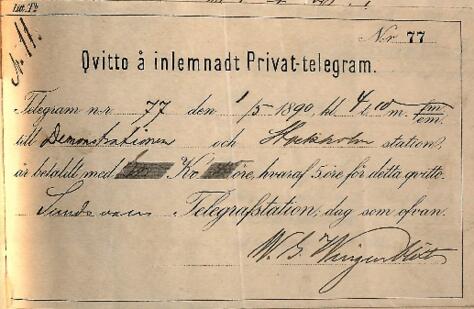 Litt. Tb
N. 11.
Nr 77
Qvitto å inlemnadt Privat-telegram.
Telegram n:r 77 den 1/5 1890, kl. 4 t. 10 m. fm em.
till Demonstrationen och Stockholm station,
är betaldt med Kr öre, hvaraf 5 öre för detta qvitto.
Sundsvall Telegrafstation, dag som ofvan.
W. G.